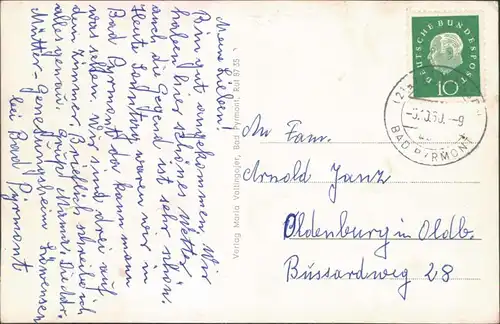 Meine Lieben!
Bin gut angekommen. Wir
haben hier schönes Wetter,
auch die Gegend ist sehr schön.
Heute Sonntag waren wir in
Bad Pyrmont, da kann man
was sehen. Wir sind drei auf
dem Zimmer. Brieflich schreibe ich
alles genau. Gruß Mama.
Mütter-Genesungsheim Löwensen
bei Bad Pyrmont
Verlag Maria Vatbinggojer, Bad Pyrmont, Ruf 87 35
DEUTSCHE BUNDESPOST
10
BAD PYRMONT
An Fam.
Arnold Janz
Oldenburg in Oldb.
Bussardweg 28